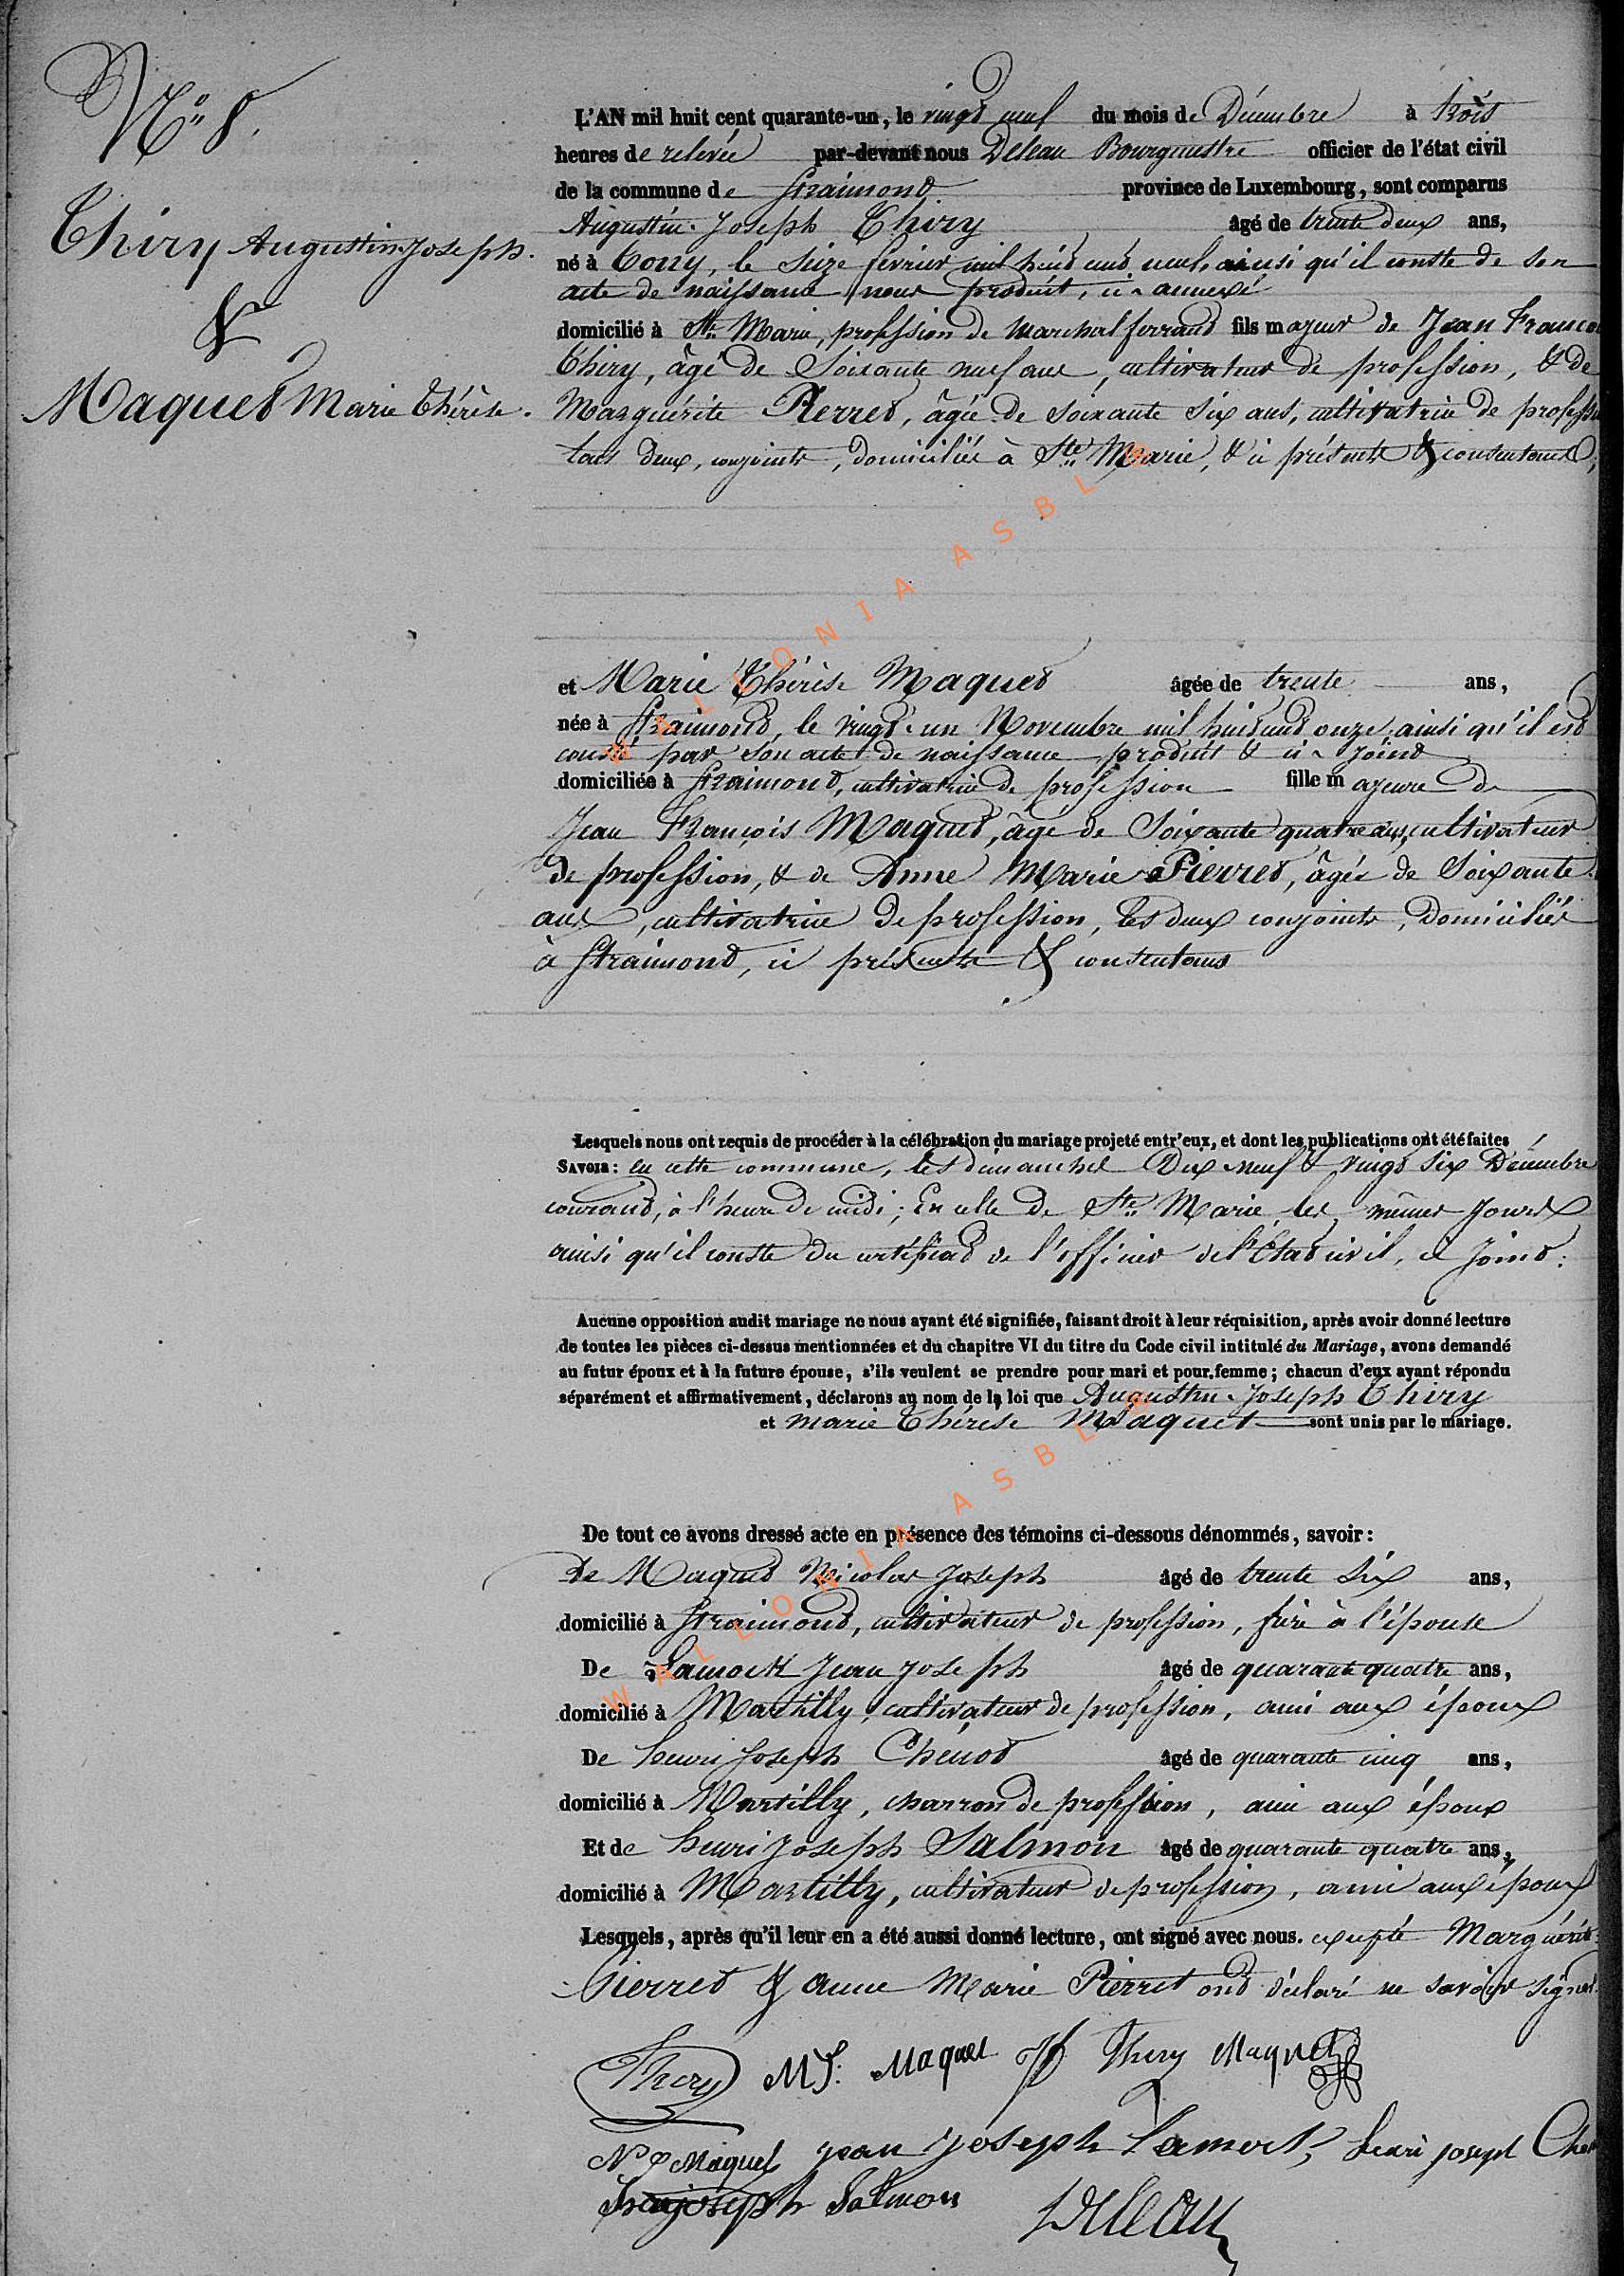 N.o 8.
Thiry Augustin Joseph.
&
Maquet Marie Thérèse.
L'AN mil huit cent quarante-un, le vingt neuf du mois de Décembre à trois
heures de relevée par-devant nous Deleau Bourgmestre officier de l'état civil
de la commune de Straimont province de Luxembourg, sont comparus
Augustin Joseph Thiry âgé de trente deux ans,
né à Cony, le Seize février mil huit cent neuf, ainsi qu'il conste de son
acte de naissance nous produit, ci-annexé
domicilié à Ste Marie, profession de marechal ferrand fils majeur de Jean Francois
Thiry, âgé de Soixante neuf ans, cultivateur de profession, & de
Marguérite Pierret, âgée de soixante six ans, cultivatrice de profession
tous deux, conjoints, domiciliés à Ste Marie, & ci présents & consentants;
et Marie Thérèse Maquet âgée de trente ans,
née à Straimont, le vingt-un Novembre mil huit cent onze, ainsi qu'il est
consté par son acte de naissance produit & ci-joint
domiciliée à Straimont, cultivatrice de profession fille majeure de
Jean François Maquet, âgé de Soixante quatre ans, cultivateur
de profession, & de Anne Marie Pierret, âgée de Soixante
ans, cultivatrice de profession, les deux conjoints, domiciliés
à Straimont, ci présents & consentans
Lesquels nous ont requis de procéder à la célébration du mariage projeté entr'eux, et dont les publications ont été faites
SAVOIR: en cette commune, les dimanches Dix neuf & vingt six Décembre
courant, à l'heure de midi; En celle de Ste Marie, les mêmes jours
ainsi qu'il conste du certificat de l'officier de l'État civil, ci joint:
Aucune opposition audit mariage ne nous ayant été signifiée, faisant droit à leur réquisition, après avoir donné lecture
de toutes les pièces ci-dessus mentionnées et du chapitre VI du titre du Code civil intitulé du Mariage, avons demandé
au futur époux et à la future épouse, s'ils veulent se prendre pour mari et pour femme; chacun d'eux ayant répondu
séparément et affirmativement, déclarons au nom de la loi que Augustin Joseph Thiry
et marie Thérèse Maquet sont unis par le mariage.
De tout ce avons dressé acte en présence des témoins ci-dessous dénommés, savoir:
De Maquet Nicolas Joseph âgé de trente Six ans,
domicilié à Straimont, cultivateur de profession, frère à l'épouse
De Lamock Jean Joseph âgé de quarante quatre ans,
domicilié à Martilly, cultivateur de profession, ami aux époux
De henri Joseph Chenot âgé de quarante cinq ans,
domicilié à Martilly, charron de profession, ami aux époux
Et de henri Joseph Salmon âgé de quarante quatre ans,
domicilié à Martilly, cultivateur de profession, ami aux époux
Lesquels, après qu'il leur en a été aussi donné lecture, ont signé avec nous. excepté Marguérite
Pierret & anne Marie Pierret ont déclaré ne savoir signer.
Thiry M T. Maquet J f Thiry Maquet
N J Maquet Jean Joseph Lamock henri joseph
joseph Salmon Deleau
WALLONIA ASBL
WALLONIA ASBL